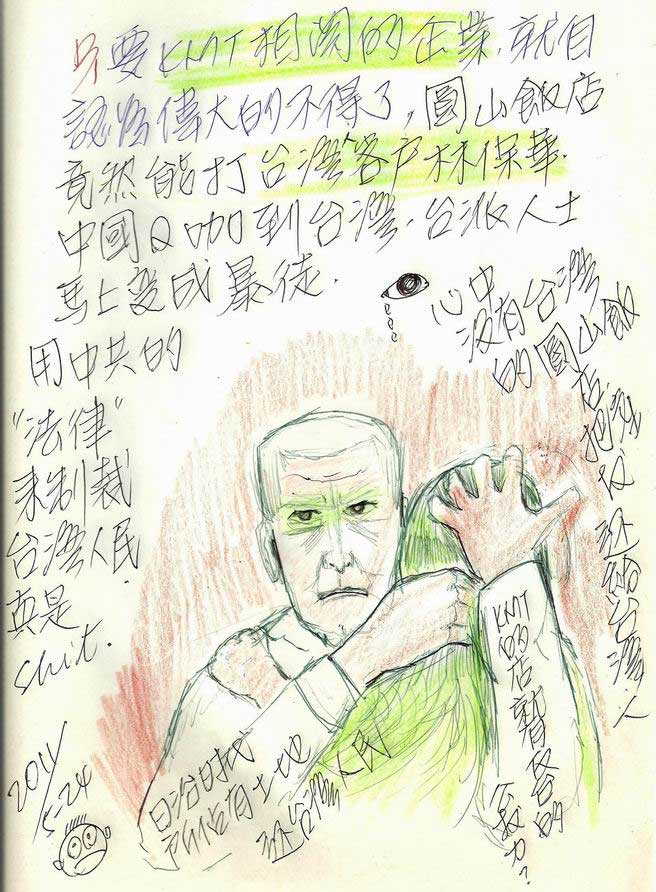 只要KMT相関的企業,就自
認為偉大的不得了,圓山飯店
竟然能打台灣客户林保華.
中國Q咖到台灣.台派人士
馬上変成暴徒.
心中
没有台灣
的圓山飯
店把
还給台灣人
用中共的
"法律"
来制裁
台灣人民
真是
shit.
KMT的店暫容的
日治时代
所佔有土地
还台灣人民
2011/5.24